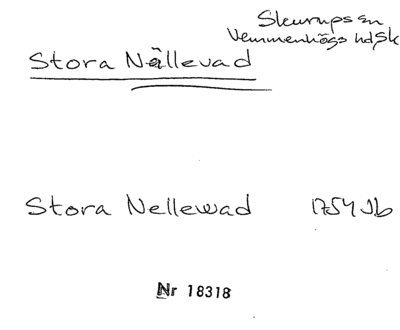 Skurups sn
Vemmenhögs hd Sk
Stora Nällevad
Stora Nellewad 1754 Jb
Nr 18318